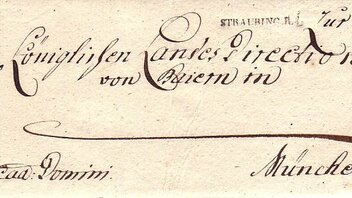 STRAUBING.R.4. Zur
Königlichen Landes Direction
von Baiern in
ad: Domini. Münche